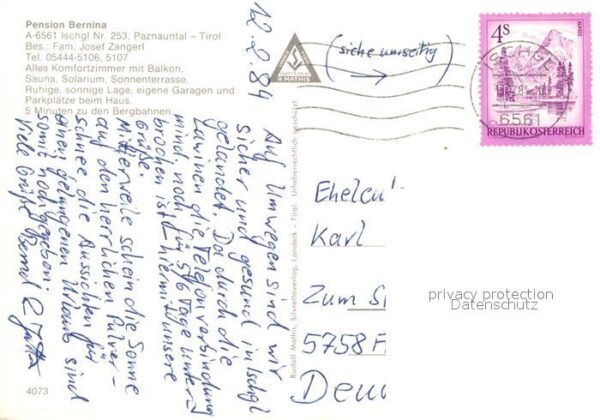 Pension Bernina
A-6561 Ischgl Nr. 253, Paznauntal – Tirol
Bes.: Fam. Josef Zangerl
Tel. 05444-5106, 5107
Alles Komfortzimmer mit Balkon,
Sauna, Solarium, Sonnenterrasse.
Ruhige, sonnige Lage, eigene Garagen und
Parkplätze beim Haus.
5 Minuten zu den Bergbahnen.
12.2.84
Auf Umwegen sind wir
sicher und gesund in Ischgl
gelandet. Da durch die
Lawinen die Telefonverbindung
mind. noch für 5/6 Tage unter-
brochen ist hiermit unsere
Grüße.
Mittlerweile schein die Sonne
auf den herrlichen Pulver-
schnee die Aussichten für
einen gelungenen Urlaub sind
somit noch gegeben.
Viele Grüße Bernd & Jutta
4073
R. MATHIS
Rudolf Mathis, Silvrettaverlag, Landeck - Tirol. Urheberrechtlich geschützt
(siehe umseitig)
4S
ISCHGL
6561
REPUBLIK ÖSTERREICH
Karl
Zum
5758
privacy protection
Datenschutz